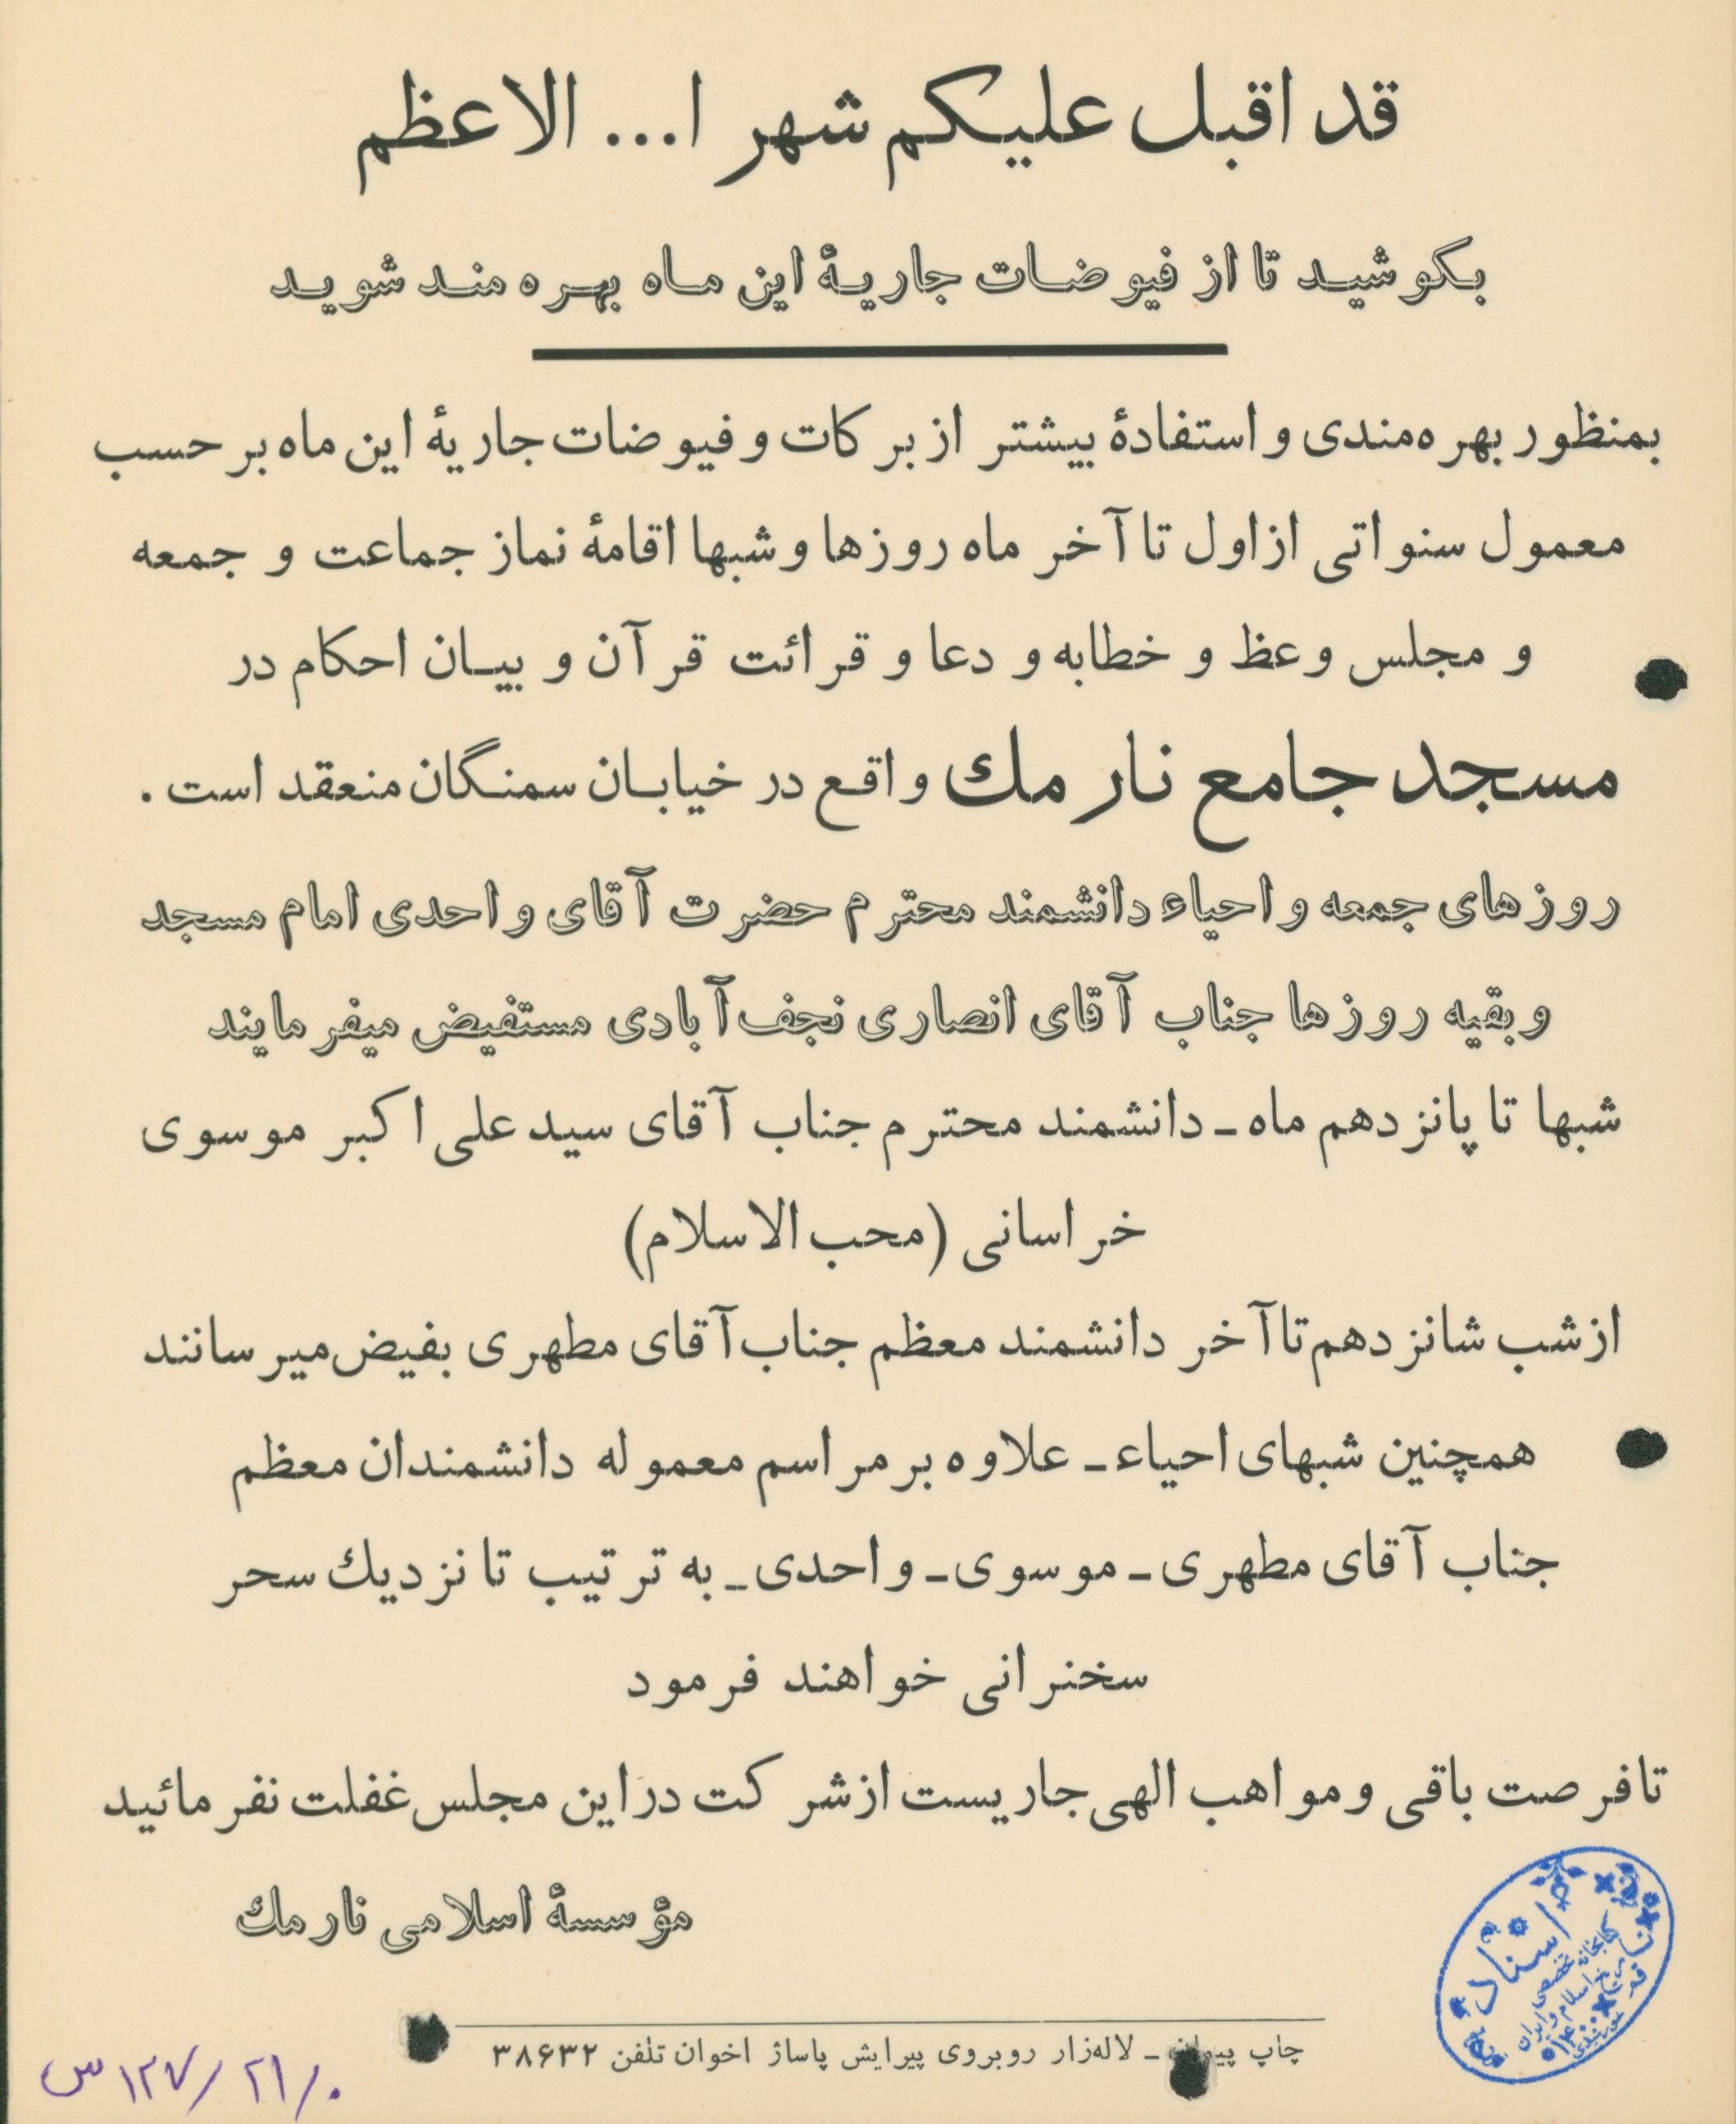 قد اقبل علیکم شهر ا... الاعظم
بکوشید تا از فیوضات جاریهٔ این ماه بهره مند شوید
بمنظور بهره‌مندی و استفادهٔ بیشتر از برکات و فیوضات جاریهٔ این ماه بر حسب
معمول سنواتی از اول تا آخر ماه روزها و شبها اقامهٔ نماز جماعت و جمعه
و مجلس وعظ و خطابه و دعا و قرائت قرآن و بیان احکام در
مسجد جامع نارمك واقع در خیابان سمنگان منعقد است .
روزهای جمعه و احیاء دانشمند محترم حضرت آقای واحدی امام مسجد
و بقیه روزها جناب آقای انصاری نجف‌آبادی مستفیض میفرمایند
شبها تا پانزدهم ماه ـ دانشمند محترم جناب آقای سید علی اکبر موسوی
خراسانی (محب‌الاسلام)
از شب شانزدهم تا آخر دانشمند معظم جناب آقای مطهری بفیض میرسانند
همچنین شبهای احیاء ـ علاوه بر مراسم معموله دانشمندان معظم
جناب آقای مطهری ـ موسوی ـ واحدی ـ به ترتیب تا نزدیك سحر
سخنرانی خواهند فرمود
تا فرصت باقی و مواهب الهی جاریست از شرکت در این مجلس غفلت نفرمائید
مؤسسهٔ اسلامی نارمك
چاپ ـ لاله‌زار روبروی پیرایش پاساژ اخوان تلفن ۳۸۶۳۲
اسناد
کتابخانه تخصصی
تاریخ اسلام و ایران
قم
۰/۲۱/۱۲۷س